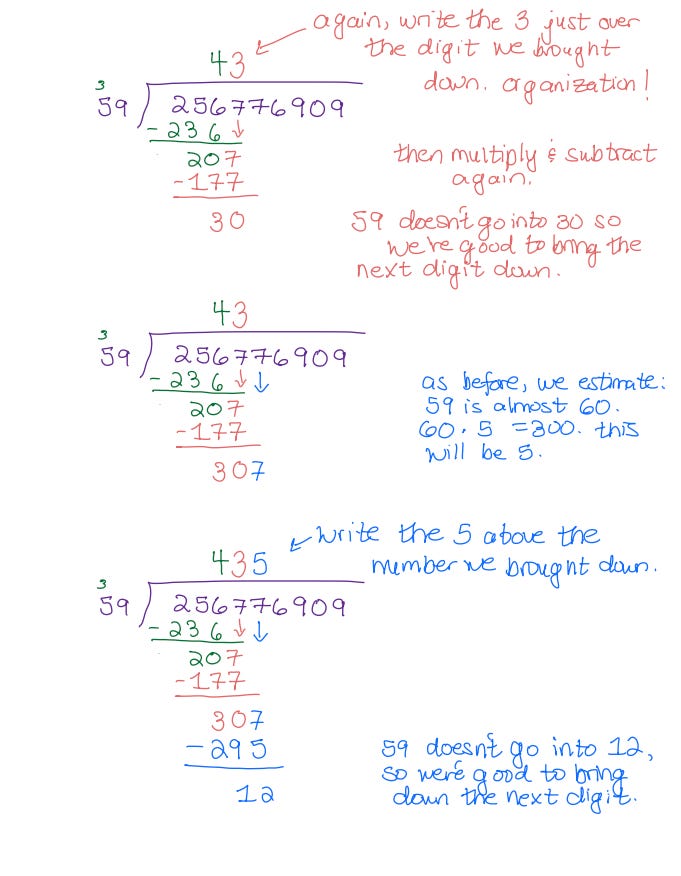 again, write the 3 just over
the digit we brought
down. organization!
43
3
59 256776909
- 236 ↓
207
-177
30
then multiply & subtract
again.
59 doesn't go into 30 so
we're good to bring the
next digit down.
43
3
59 256776909
- 236 ↓ ↓
207
-177
307
as before, we estimate:
59 is almost 60.
60 · 5 = 300. this
will be 5.
write the 5 above the
number we brought down.
435
3
59 256776909
- 236 ↓ ↓
207
-177
307
-295
12
59 doesn't go into 12,
so we're good to bring
down the next digit.